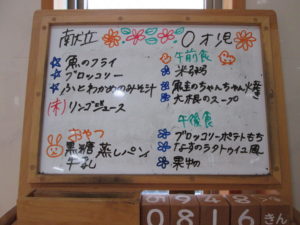 献立
0才児
魚のフライ
ブロッコリー
ふとわかめのみそ汁
(米)リンゴジュース
おやつ
黒糖蒸しパン
牛乳
午前食
米粥
鮭のちゃんちゃん焼
大根のスープ
午後食
ブロッコリーポテトもち
なすのラクトウイユ風
果物
0816きん